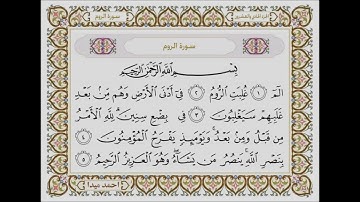 سورة الروم
الجزء الحادي والعشرين
سورة الروم
بِسْمِ اللَّهِ الرَّحْمَٰنِ الرَّحِيمِ
الٓمٓ ١ غُلِبَتِ الرُّومُ ٢ فِي أَدْنَى الْأَرْضِ وَهُم مِّن بَعْدِ
غَلَبِهِمْ سَيَغْلِبُونَ ٣ فِي بِضْعِ سِنِينَ ۗ لِلَّهِ الْأَمْرُ
مِن قَبْلُ وَمِن بَعْدُ ۚ وَيَوْمَئِذٍ يَفْرَحُ الْمُؤْمِنُونَ ٤
بِنَصْرِ اللَّهِ ۚ يَنصُرُ مَن يَشَاءُ ۖ وَهُوَ الْعَزِيزُ الرَّحِيمُ ٥
احمد ميدا